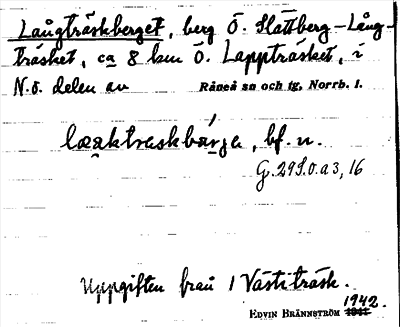 Långträskberget, berg Ö. Slättberg-Lång-
träsket, ca 8 km Ö. Lappträsket, i
N.ö. delen av Råneå sn och tg, Norrb. l.
bf. n.
G. 29S.0.a3, 16
Uppgiften från 1 Västiträsk.
1942.
EDVIN BRÄNNSTRÖM 1941